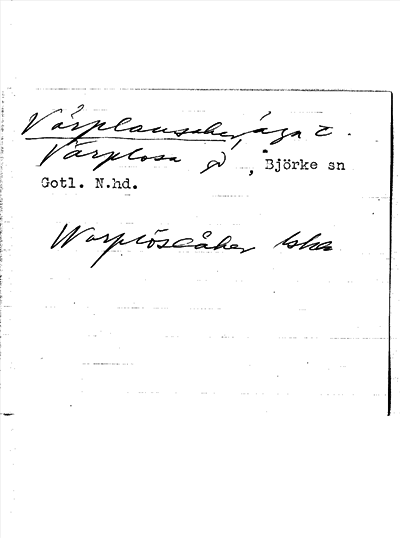 Värplausaker, äga t.
Värplosa gd, Björke sn
Gotl. N.hd.
Worplöseåker lska